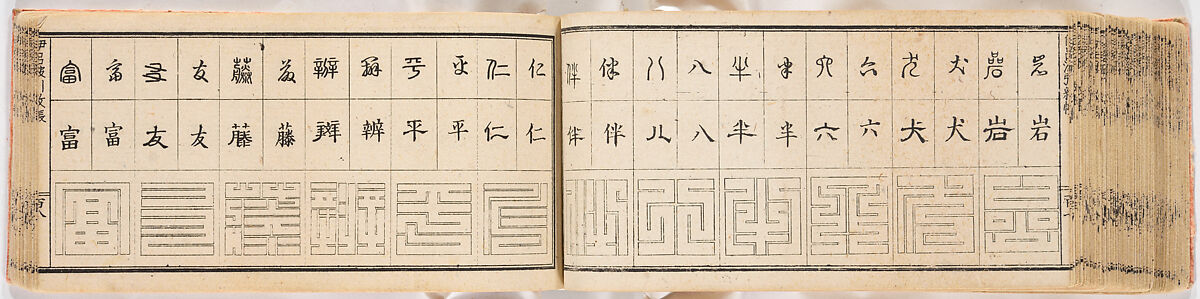 岩岩
嵒岩
犬犬
犬犬
六六
六六
半半
半半
八八
八八
伴伴
伴伴
仁仁
仁仁
平平
平平
辨辨
辨辨
藤藤
藤藤
友友
友友
富富
富富
伊呂波引紋帳
百八